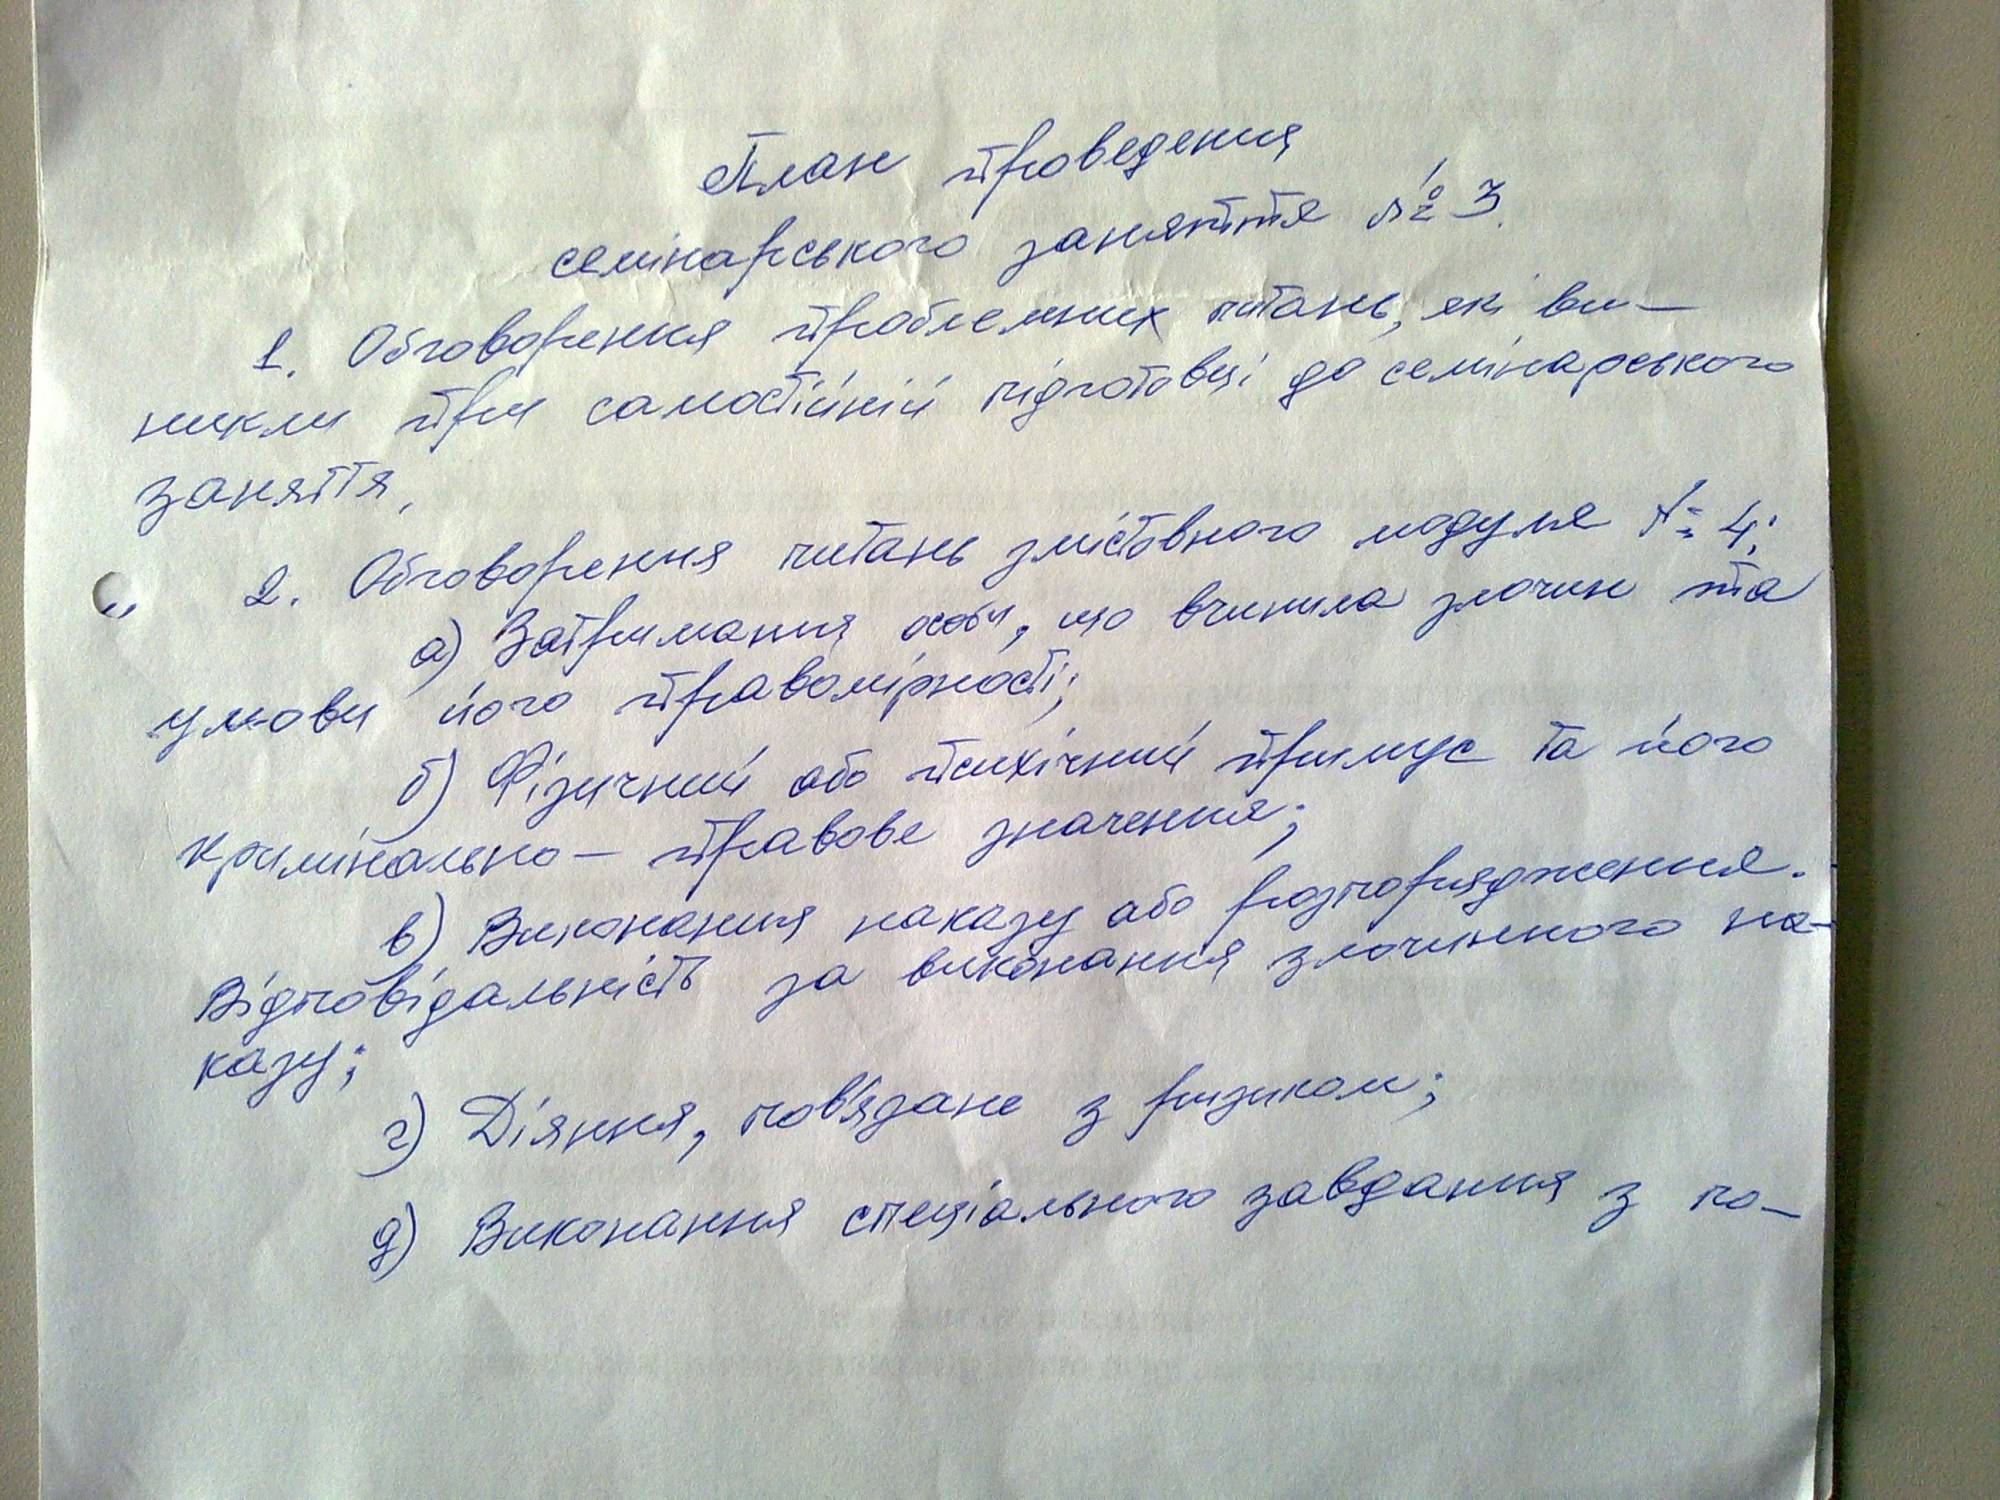 План проведення
семінарського заняття № 3.
1. Обговорення проблемних питань, які ви-
никли при самостійній підготовці до семінарського
заняття.
2. Обговорення питань змістовного модуля № 4:
а) Затримання особи, що вчинила злочин та
умови його правомірності;
б) Фізичний або психічний примус та його
кримінально-правове значення;
в) Виконання наказу або розпорядження.
Відповідальність за виконання злочинного на-
казу;
г) Діяння, пов'язане з ризиком;
д) Виконання спеціального завдання з по-